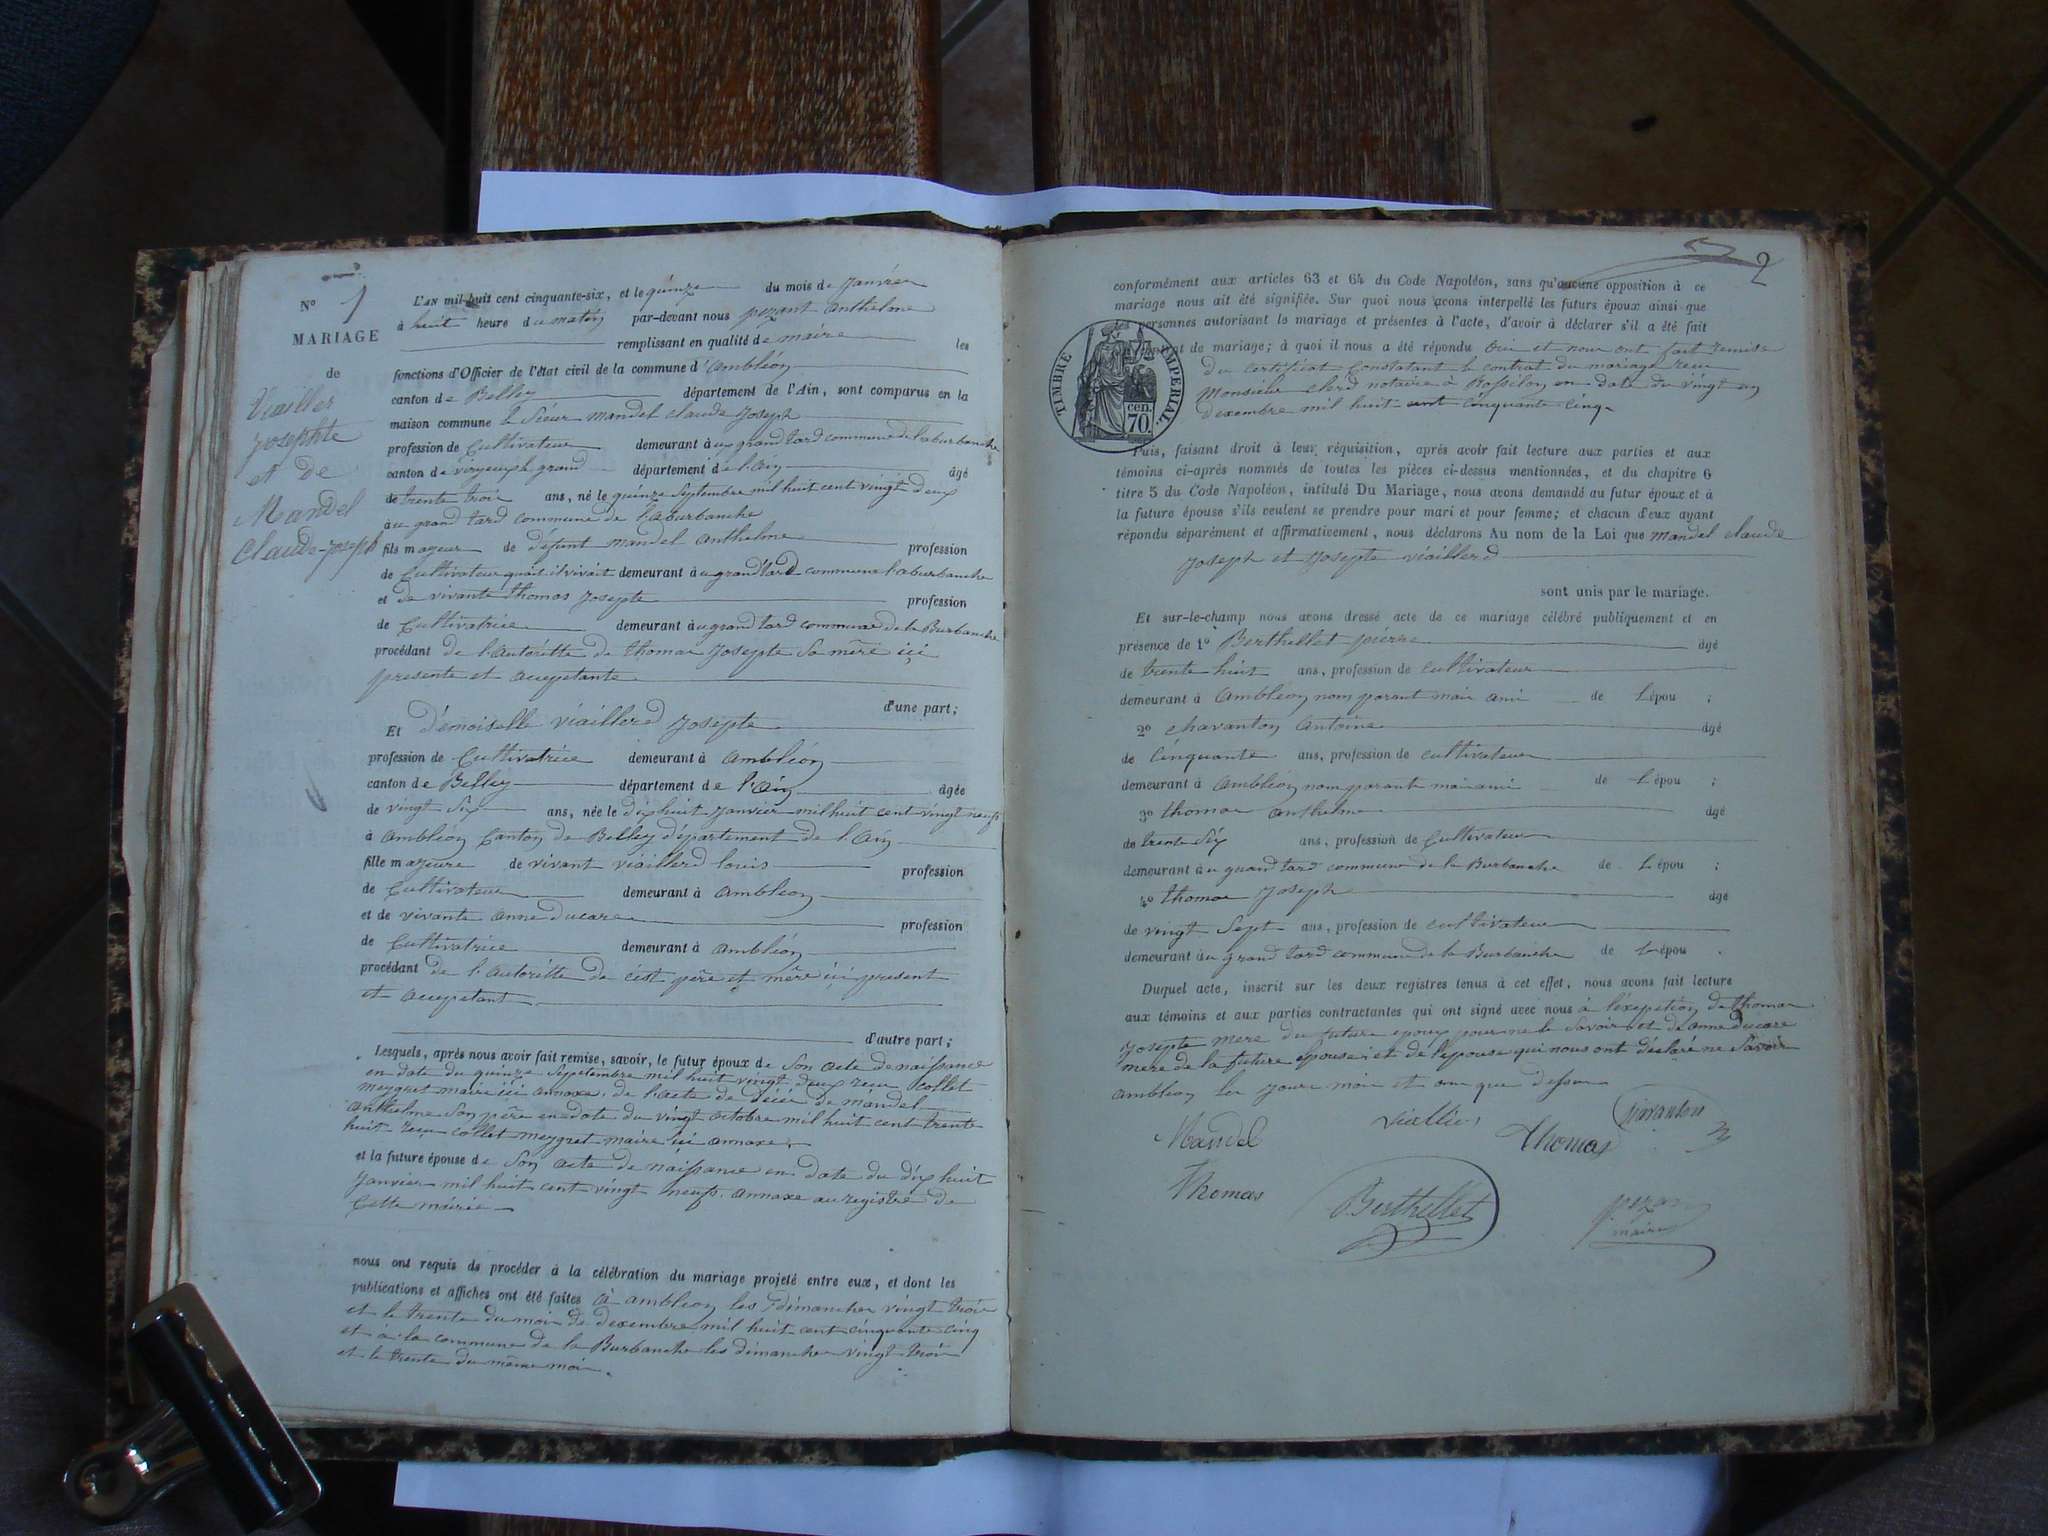 N° 1
MARIAGE
de
Viailler
Josephte
et de
Mandel
Claude-Joseph
L'AN mil huit cent cinquante-six, et le quinze du mois de Janvier
à huit heure du matin par-devant nous pezant anthelme
remplissant en qualité de maire les
fonctions d'Officier de l'état civil de la commune d'ambléon
canton de Belley département de l'Ain, sont comparus en la
maison commune le Sieur mandel claude Joseph
profession de Cultivateur demeurant à au grand tard commune de laburbanche
canton de viryeux le grand département de l'ain âgé
de trente trois ans, né le quinze Septembre mil huit cent vingt deux
à au grand tard commune de laburbanche
fils majeur de défunt mandel anthelme profession
de Cultivateur quant il vivait demeurant à au grand tard commune laburbanche
et de vivante thomas Josepte profession
de Cultivatrice demeurant à au grand tard commune de la Burbanche
procédant de l'autoritte de thomas Josepte Sa mère ici
presente et acceptante
d'une part;
Et Démoiselle viaillerd Josepte
profession de Cultivatrice demeurant à ambléon
canton de Belley département de l'ain âgée
de vingt six ans, née le dix huit Janvier mil huit cent vingt neufs
à ambléon Canton de Belley département de l'ain
fille majeure de vivant viaillerd louis profession
de Cultivateur demeurant à ambléon
et de vivante anne ducare profession
de Cultivatrice demeurant à ambléon
procédant de l'autoritte de c'est père et mère ici present
et acceptant
d'autre part;
Lesquels, après nous avoir fait remise, savoir, le futur époux de Son acte de naissance
en date du quinze Septembre mil huit vingt deux recu collet
meygret maire ici annaxe. de l'acte de décer de mandel
anthelme Son père en date du vingt octobre mil huit cent trente
huit recu collet meygret maire ici annaxe.
et la future épouse de Son acte de naissance en date du dix huit
Janvier mil huit cent vingt neufs. annaxe au registre de
Cette mairie
nous ont requis de procéder à la célébration du mariage projeté entre eux, et dont les
publications et affiches ont été faites à ambléon les dimancher vingt trois
et le trente du moi de dexembre mil huit cent cinquante cinq
et à la commune de la Burbanche les dimancher vingt trois
et le trente du même moi.
2
conformément aux articles 63 et 64 du Code Napoléon, sans qu'aucune opposition à ce
mariage nous ait été signifiée. Sur quoi nous avons interpellé les futurs époux ainsi que
personnes autorisant le mariage et présentes à l'acte, d'avoir à déclarer s'il a été fait
de mariage; à quoi il nous a été répondu Oui et nous ont fait remise
du certificat Constatant le contrat du mariage recu
Monsieur clerd notaire à Rossilon en date du vingt un
dexembre mil huit cent cinquante cinq
TIMBRE IMPERIAL.
cen.
70.
Puis, faisant droit à leur réquisition, après avoir fait lecture aux parties et aux
témoins ci-après nommés de toutes les pièces ci-dessus mentionnées, et du chapitre 6
titre 5 du Code Napoléon, intitulé Du Mariage, nous avons demandé au futur époux et à
la future épouse s'ils veulent se prendre pour mari et pour femme; et chacun d'eux ayant
répondu séparément et affirmativement, nous déclarons Au nom de la Loi que mandel claude
Joseph et Josepte viaillerd
sont unis par le mariage.
Et sur-le-champ nous avons dressé acte de ce mariage célébré publiquement et en
présence de 1° Berthellet pierre âgé
de trente huit ans, profession de cultivateur
demeurant à ambléon nom parant mair ami de L'épou ;
2° chavanton antoine âgé
de Cinquante ans, profession de cultivateur
demeurant à ambléon nom parante mair ami de L'épou ;
3° thomas anthelme âgé
de trente six ans, profession de Cultivateur
demeurant à au grand tard commune de la Burbanche de L'épou ;
4° thomas Joseph âgé
de vingt Sept ans, profession de cultivateur
demeurant à au grand tard commune de la Burbanche de L'épou .
Duquel acte, inscrit sur les deux registres tenus à cet effet, nous avons fait lecture
aux témoins et aux parties contractantes qui ont signé avec nous à l'éxeption de thomas
Josepte mere du future epoux pour ne le Savoir et de anne ducare
mere de la future epouse; et de l'epouse qui nous ont déclaré ne Savoir
ambléon les Jours moi et an que dessus
Mandel viallier Thomas chavanton
Thomas Berthellet pezant
maire